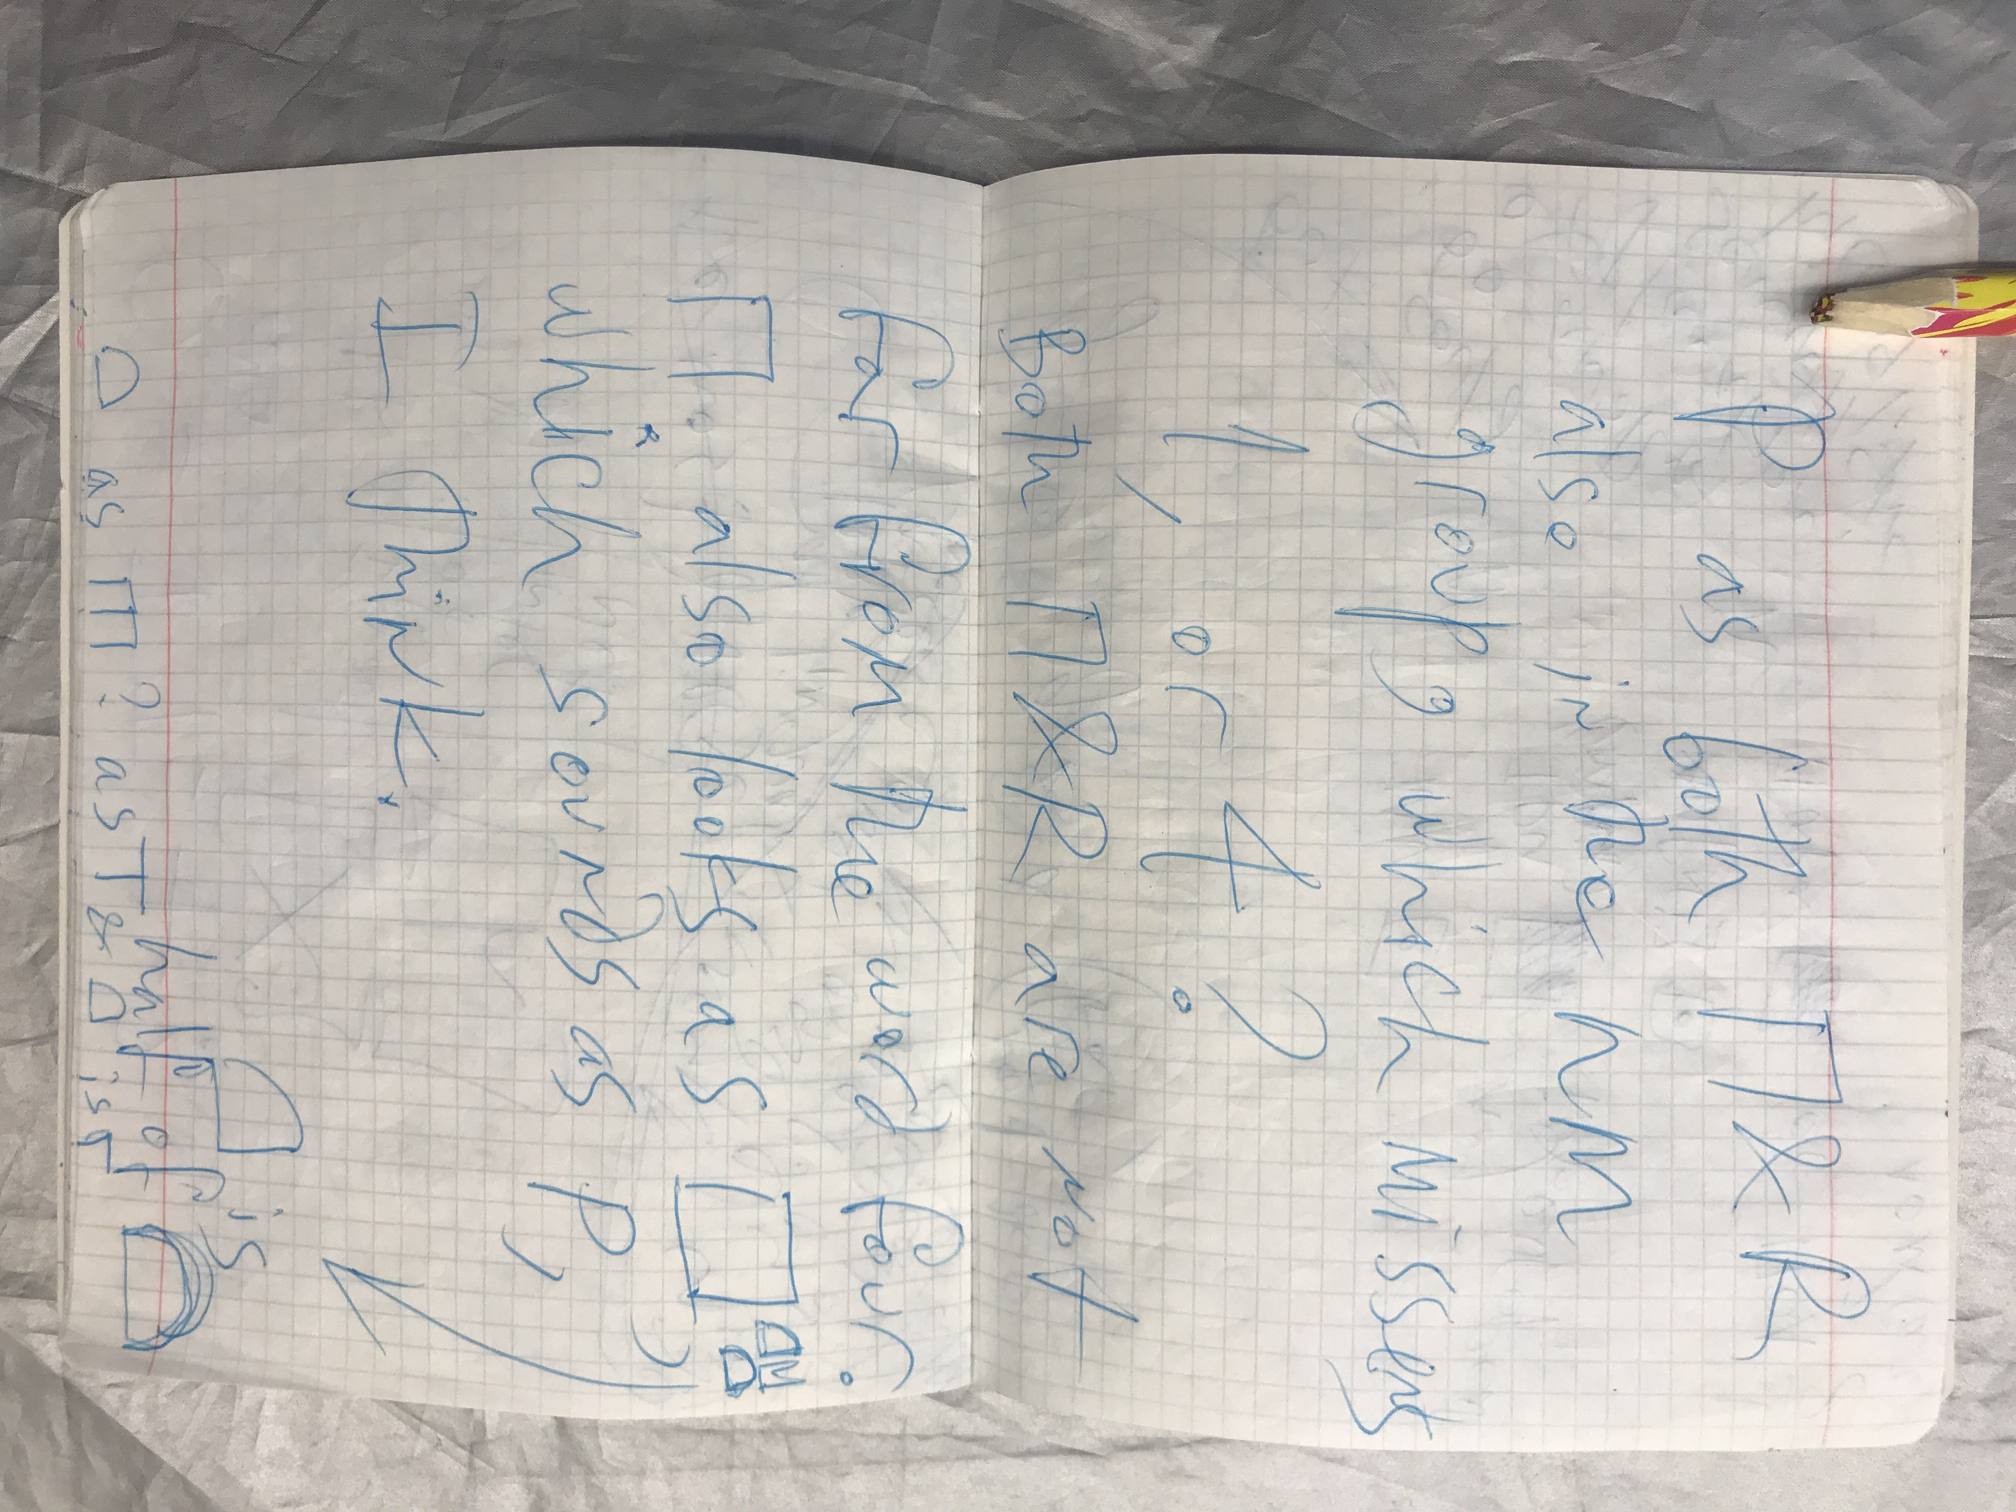 P as both П & R
also in the hum
group, which missing
1, or 4?
Both П & R are not
far from the word four.
П also looks as □,
which sounds as P,
I think.
half of D is
D as П? as T & D is